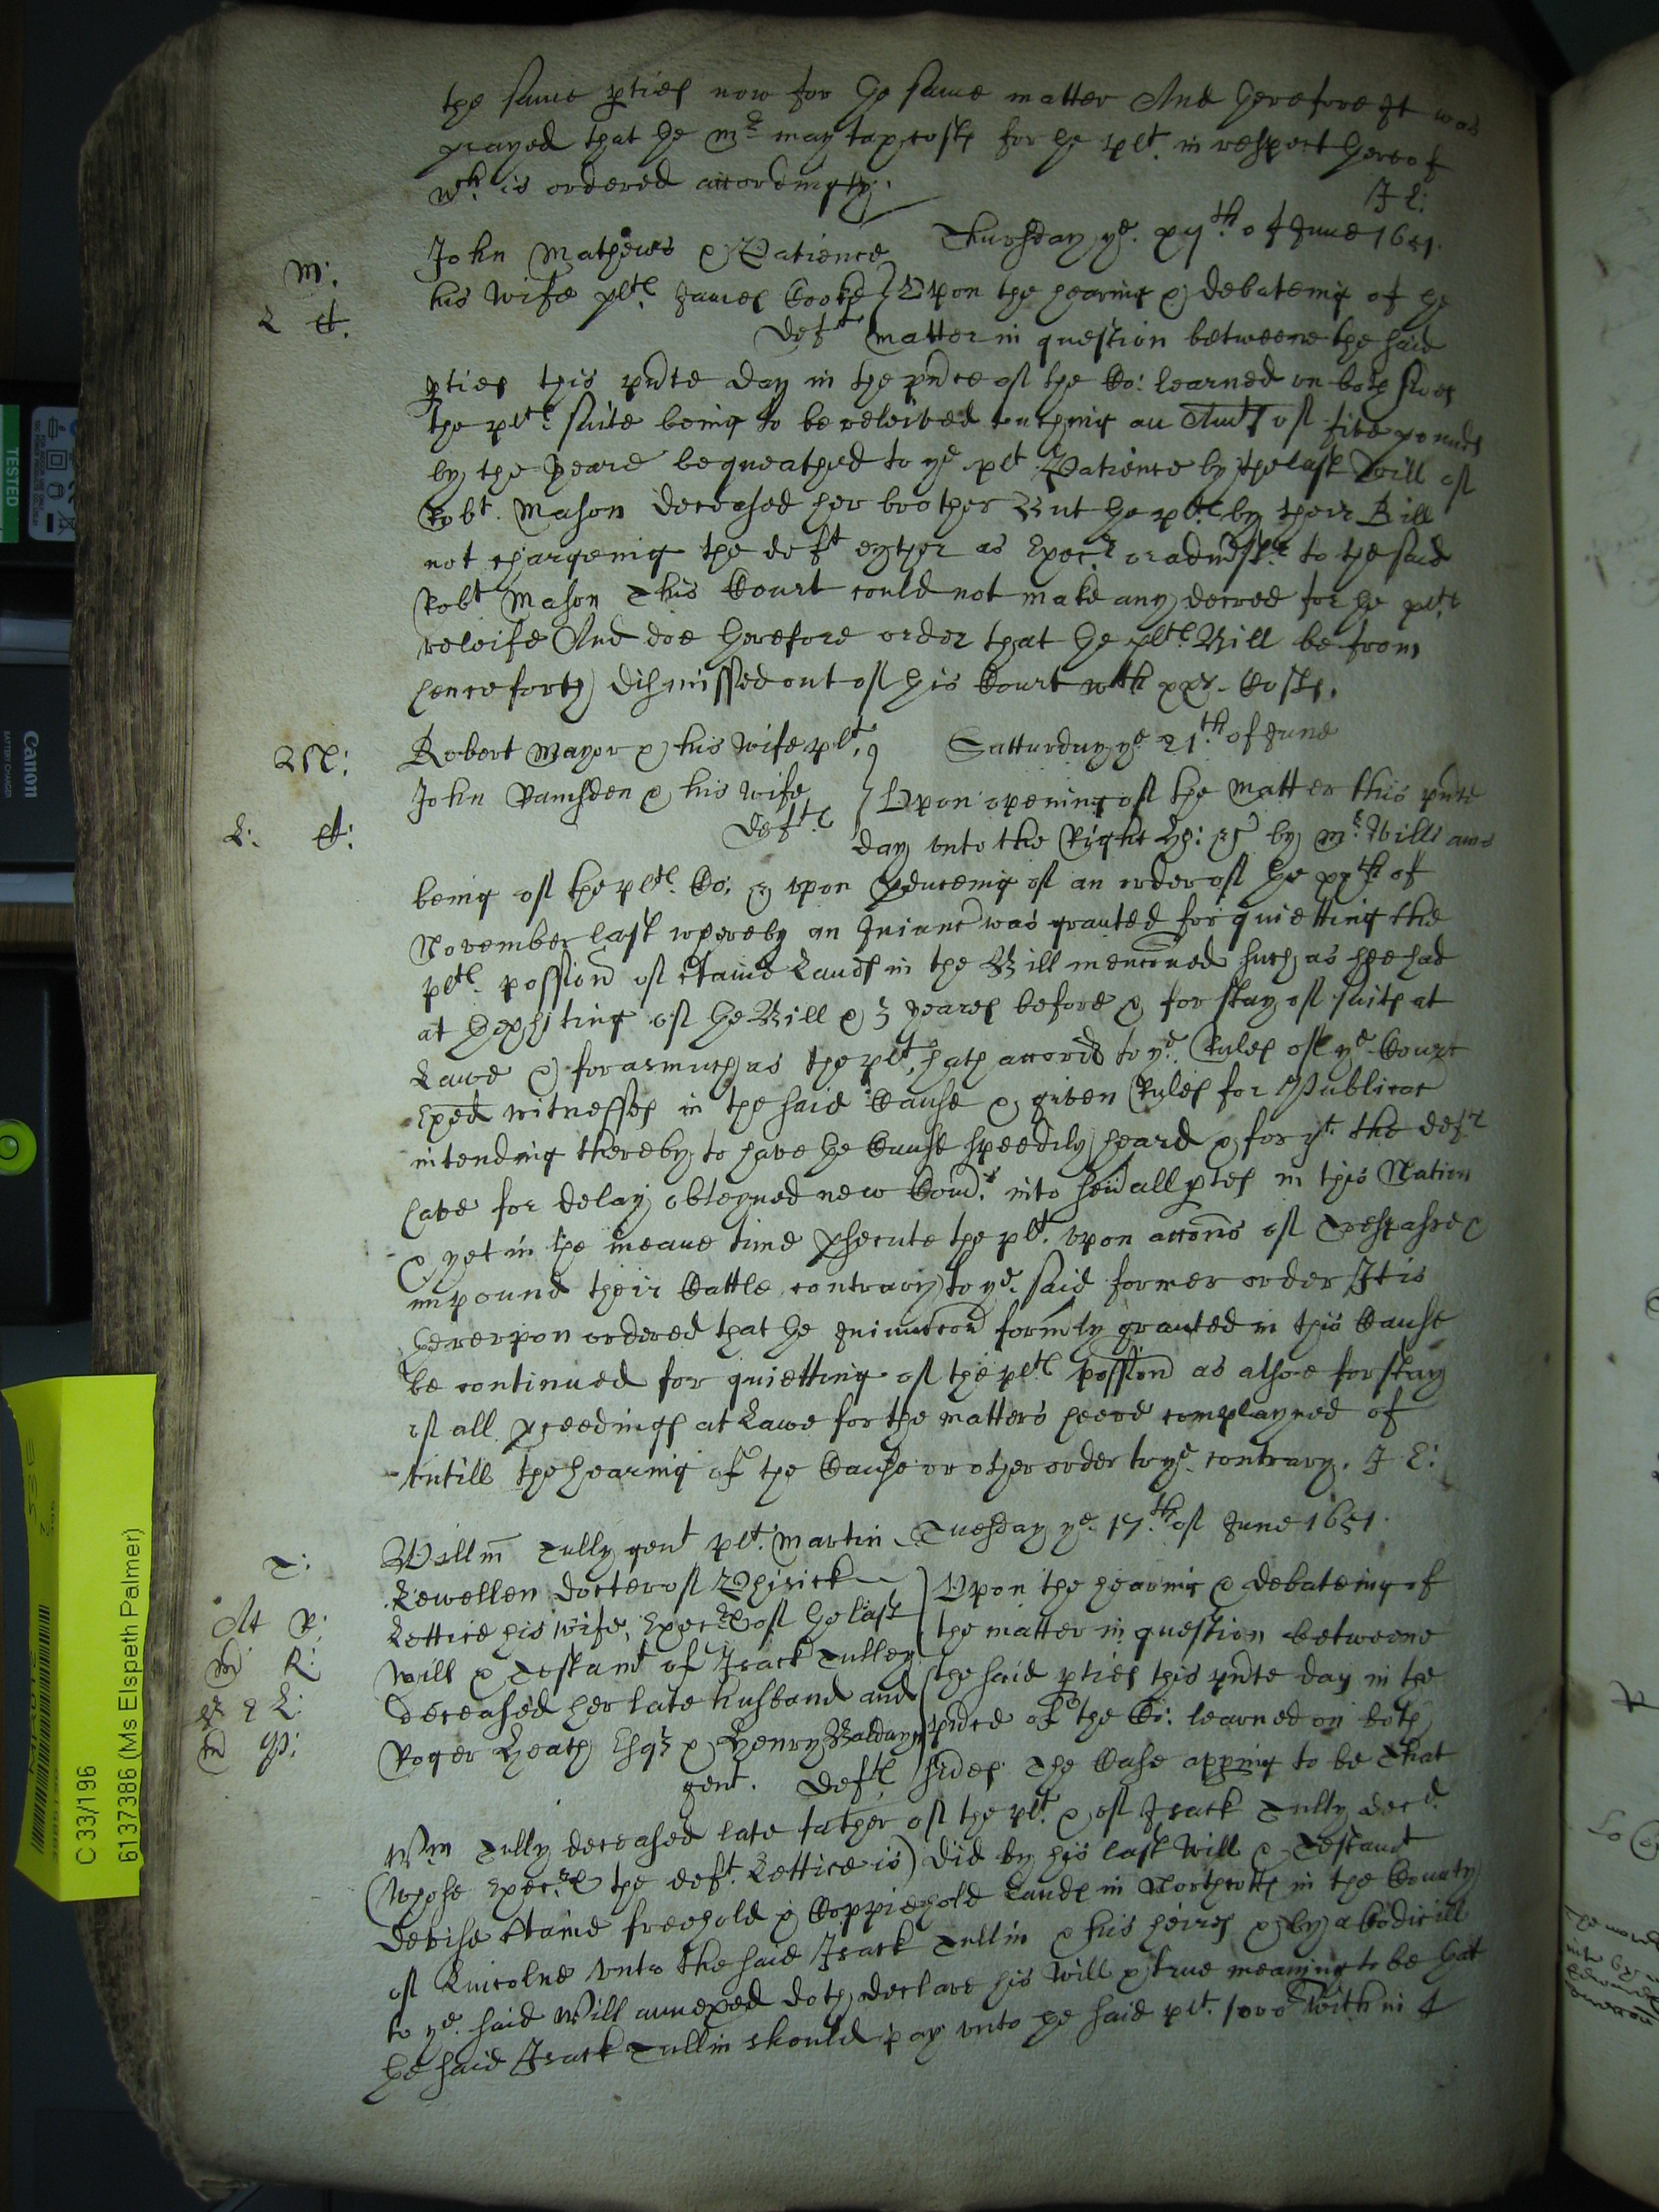 the same pties now for the same matter And therefore It was
prayed that the Mr may tax costs for the plt. in respect thereof
wch. is ordered accordingly.
J L:
M:
L
John Mathewes & Patience
Thursday ye. of June 1651.
his wife plts. James Cooke
Upon the hearing & debateing of the
Deft
matter in question betweene the said
pties this pnte day in the pnce of the Co: learned on both sides
the plts. suite being to be releived touching an of five pounds
by the yeare bequeathed to ye. plt. Patience by the last Will of
Robt. Mason deceased her brother But the plts. by their Bill
not chargeing the deft eyther as Execr. or admstr. to the said
Robt Mason This Court could not make any decree for the plts.
releife And doe therefore order that the plts. Bill be from
henceforth dismissed out of this Court wth Costs.
M:
Robert Mayor & his wife plt.
Satturday ye 21th of June
John Ramsden & his wife
Upon opening of the matter this pnte
L:
Defts
day unto the Right ho: by Mr. Williams
being of the plts. Co: & upon pduceing of an order of the xxth of
November last whereby an Iniunc was granted for quietting the
plts. possion of ctaine Lands in the Bill menconed such as hee had
at exhiting of the Bill & 3 yeares before & for stay of suits at
Lawe & forasmuch as the plt. hath accord to ye. Rules of ye Court
Exed witnesses in the said Cause & given Rules for Publicac
intending thereby to have the Cause speedily heard & for yt. the defts
have for delay obteyned new Comds. into sevall ptes in this Nation
& yet in the meane time psecute the plt. upon accons of Trespasse &
impound their Cattle contrary to ye. said former order It is
thereupon ordered that the Iniuncon formly granted in this Cause
be continued for quietting of the plts. possion as alsoe for stay
of all pceedings at Lawe for the matters heere complayned of
untill the hearing of the Cause or other order to ye. contrary. J L:
T:
Willm Tully gent plt. Martin
Tuesday ye. 17th. of June 1651.
Lewellen Docter of Phisick
Upon the hearing & debateing of
R:
Lettice his wife, Execrx of the last
the matter in question betweene
R:
Will & Testamt of Isack Tulley
the said pties this pnte day in the
L:
deceased her late husband and
pnce of the Co: learned on both
P:
Roger Heath Esqr & Henry Baldwyn
sides The Case apping to be That
gent. Defts
Wm Tully deceased late father of the plt. & of Isack Tully decd.
(whose Execrx the deft. Lettice is) did by his last Will & Testamt
devise ctaine freehold & Coppiehold Lands in Northcotts in the County
of Lincolne unto the said Isack Tullin & his heires & by a Codicill
to ye. said Will annexed doth declare his will & true meaning to be that
the said Isack Tullin should pay unto the said plt. 1000l within 4
TESTED
Canon
BATTERY CHARGER
C 33/196
61737386 (Ms Elspeth Palmer)